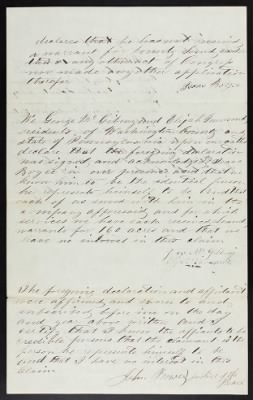 declares that he has not received
a warrant for bounty Land under
this or any other act of Congress
nor made any other application
therefor
Isaac Boyce
We George McGibony and Elijah
residents of Washington County and
State of Pennsylvania upon our oaths
declare that the foregoing declaration
was signed and acknowledged by Isaac
Boyce in our presence and that we
know him to be the identical person
he represents himself to be
each of us served with him in the
company aforesaid and for which
services we have each received
warrants for 160 acres and that we
have no interest in this claim
Geo McGibony
The foregoing declaration and affidavit
were affirmed and sworn to and
subscribed before me on the day
and year above written and I
certify that I know the affiants to be
credible persons that the claimant is the
person he represents himself to be
and that I have no interest in this
claim
John Justice of the
Peace